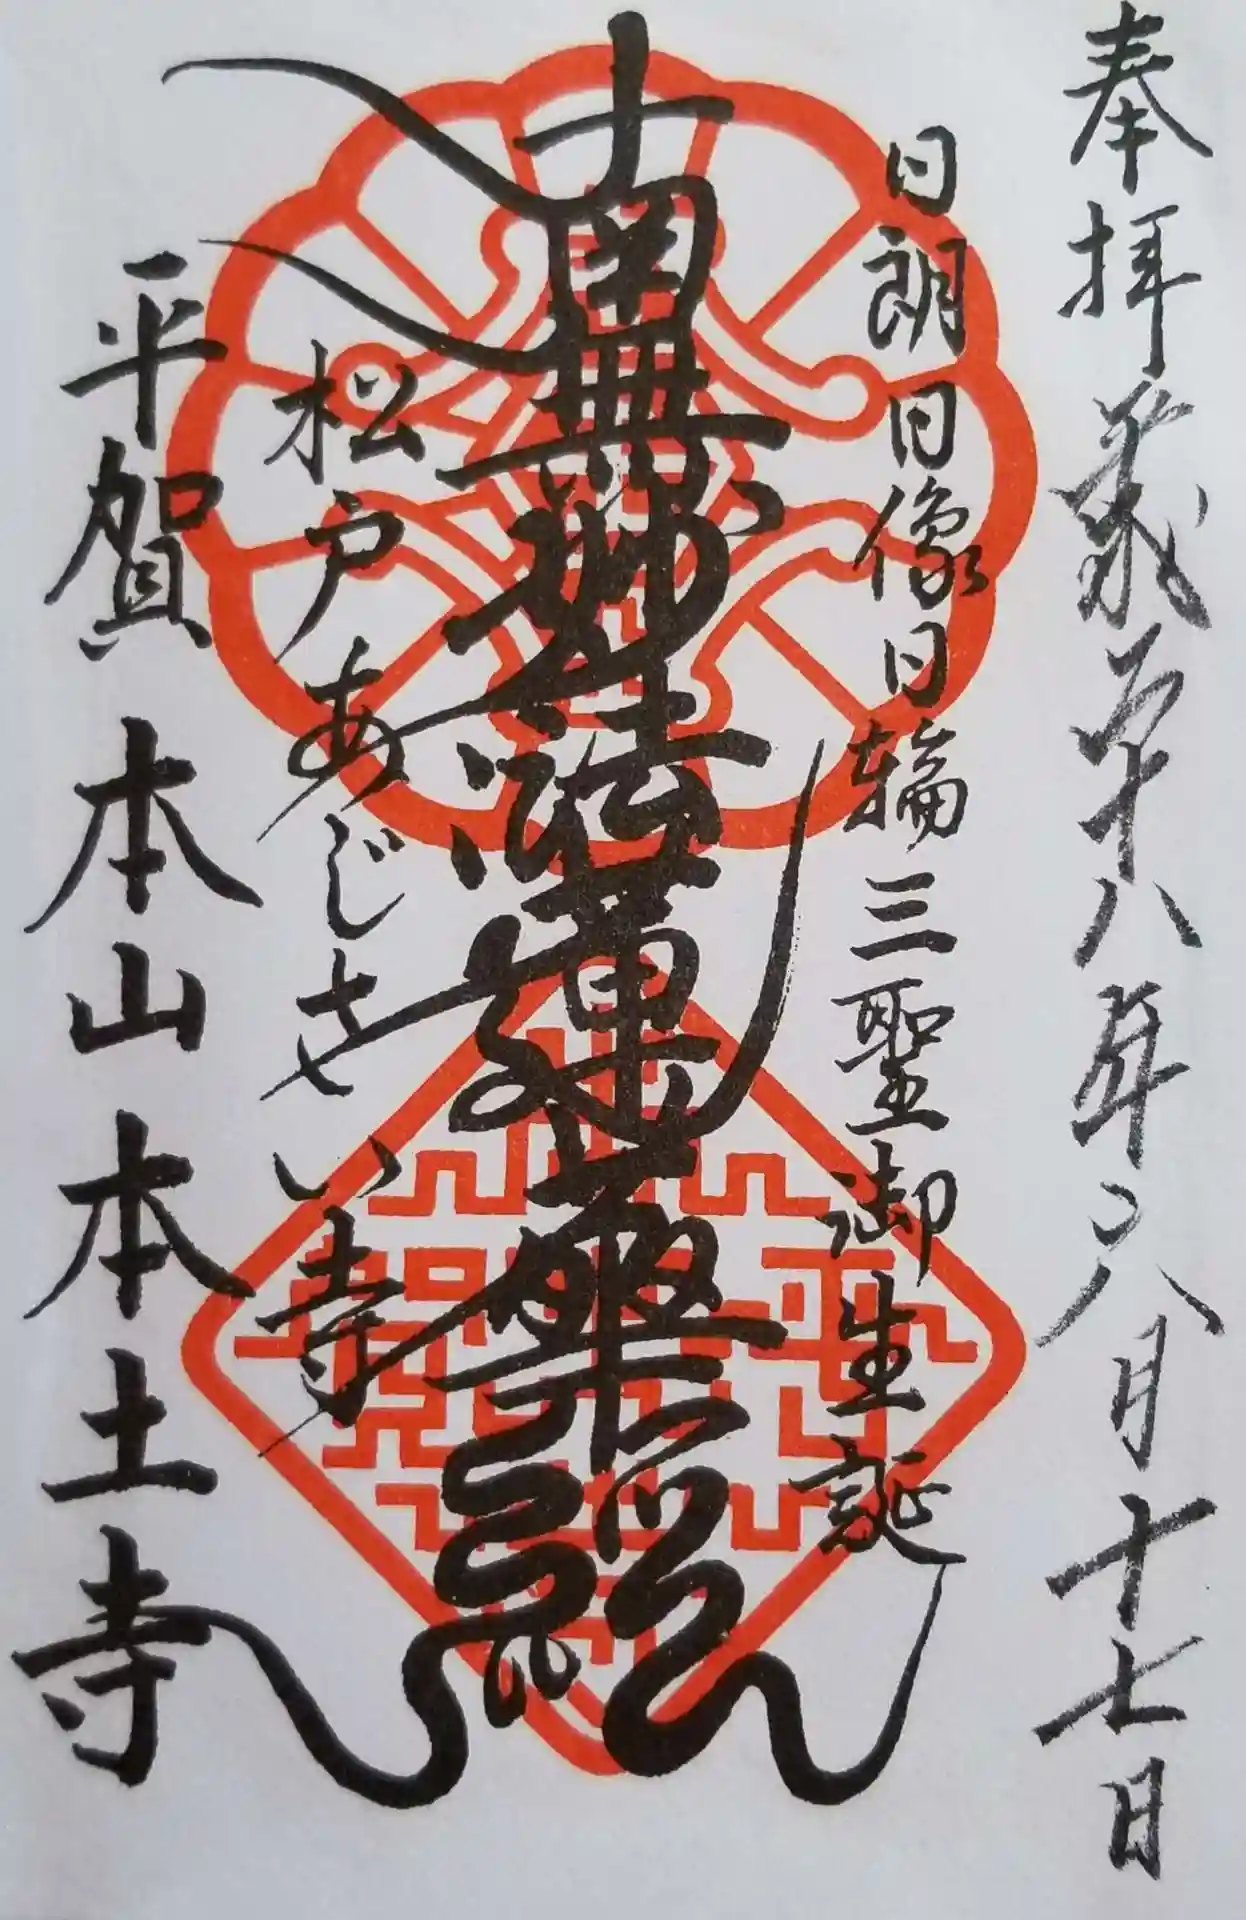 奉拝 平成二十八年六月十七日
日朗日像日輪三聖御生誕
南無妙法蓮華経
松戸あじさい寺
平賀 本山本土寺